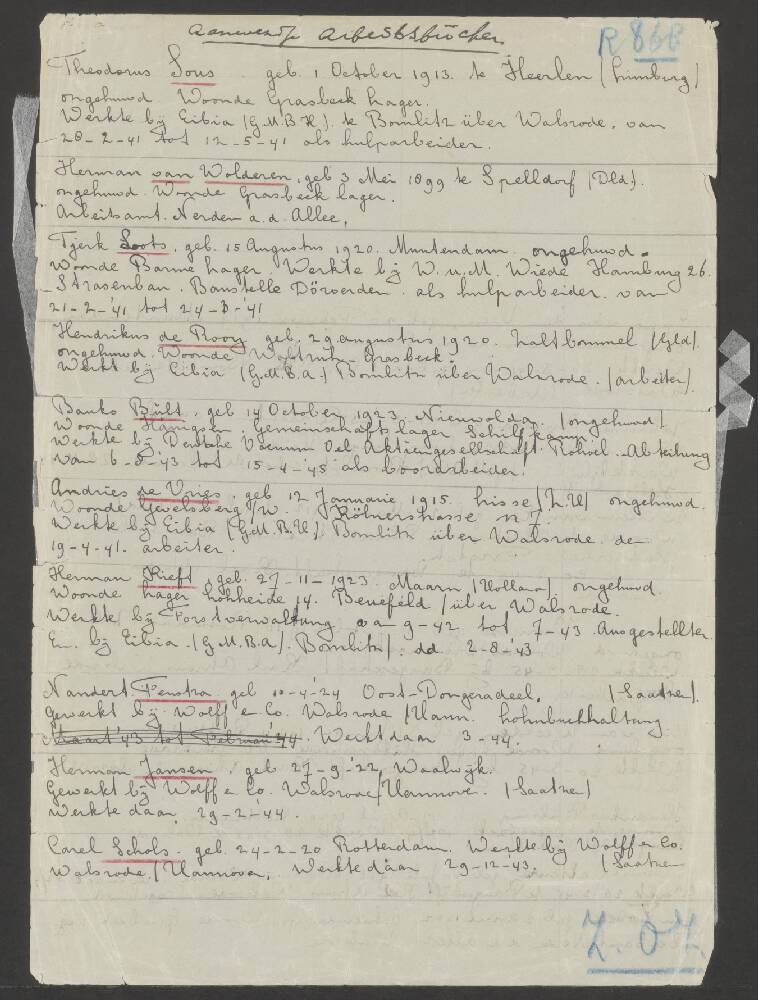 Aanwezige Arbeitsbücher
R 86B
Theodorus Sous geb. 1 October 1913. te Heerlen (Limburg)
ongehuwd Woonde Grasbeck Lager.
Werkte bij Eibia (G.M.B.H). te Bomlitz über Walsrode, van
28-2-41 tot 12-5-41 als hulparbeider.
Herman van Wolderen, geb 3 Mei 1899 te Spelldorf (Dld).
ongehuwd. Woonde Grasbeek lager.
Arbeitsamt. Verden a.d. Allee,
Tjerk Loots, geb. 15 Augustus 1920. Muntendam. ongehuwd.
Woonde Barme Lager. Werkte bij W. u. M. Wiede Hamburg 26.
Strasenbau. Baustelle Dörverden. als hulparbeider. van
21-2-'41 tot 24-8-'41
Hendrikus de Rooy geb. 29 augustus 1920. Zaltbommel (Gld).
ongehuwd. Woonde Grasbeck.
Werkt bij Eibia (G.M.B.a.) Bomlitz über Walsrode. (arbeiter).
Bauko Bült, geb 14 October 1923. Nieuwolda. (ongehuwd)
Woonde Hänigsen, Gemeinschaftslager
Werkte bij Deutsche Vacuum Oel Aktiengesellschaft. Rohoel-Abteilung
van 6-8-'43 tot 15-4-'45 als boorarbeider.
Andries de Vries, geb 12 Januarie 1915. Lisse (Z.H) ongehuwd.
Woonde Gevelsberg/W. Kölnerstrasse n° 7.
Werkte bij Eibia (G.M.B.H). Bomlitz über Walsrode. de
19-4-41. arbeiter.
Herman Kieft, geb. 27-11-1923 Maarn (Holland). ongehuwd
Woonde Lager Lohheide 14. Benefeld (über Walsrode.
Werkte bij Forstverwaltung va 9-42 tot 7-43 Ausgestellter.
En. bij Eibia. (G.M.B.a). Bomlitz). dd 2-8-'43
Nandert Fenstra geb 10-4-'24 Oost-Dongeradeel.
gewerkt bij Wolff & Co. Walsrode (Hann. Lohnbuchhaltung
Maart '43 tot Febrari '44 Werkt daar 3-44.
Herman Jansen, geb 27-9-'22, Waalwijk.
Gewerkt bij Wolff & Co. Walsrode/Hannove.
Werkte daar 29-2-'44.
Carel Schols. geb. 24-2-20 Rotterdam. Werkte bij Wolff & Co.
Walsrode./Hannover. Werkte daar 29-12-'43.
Z.O.Z.